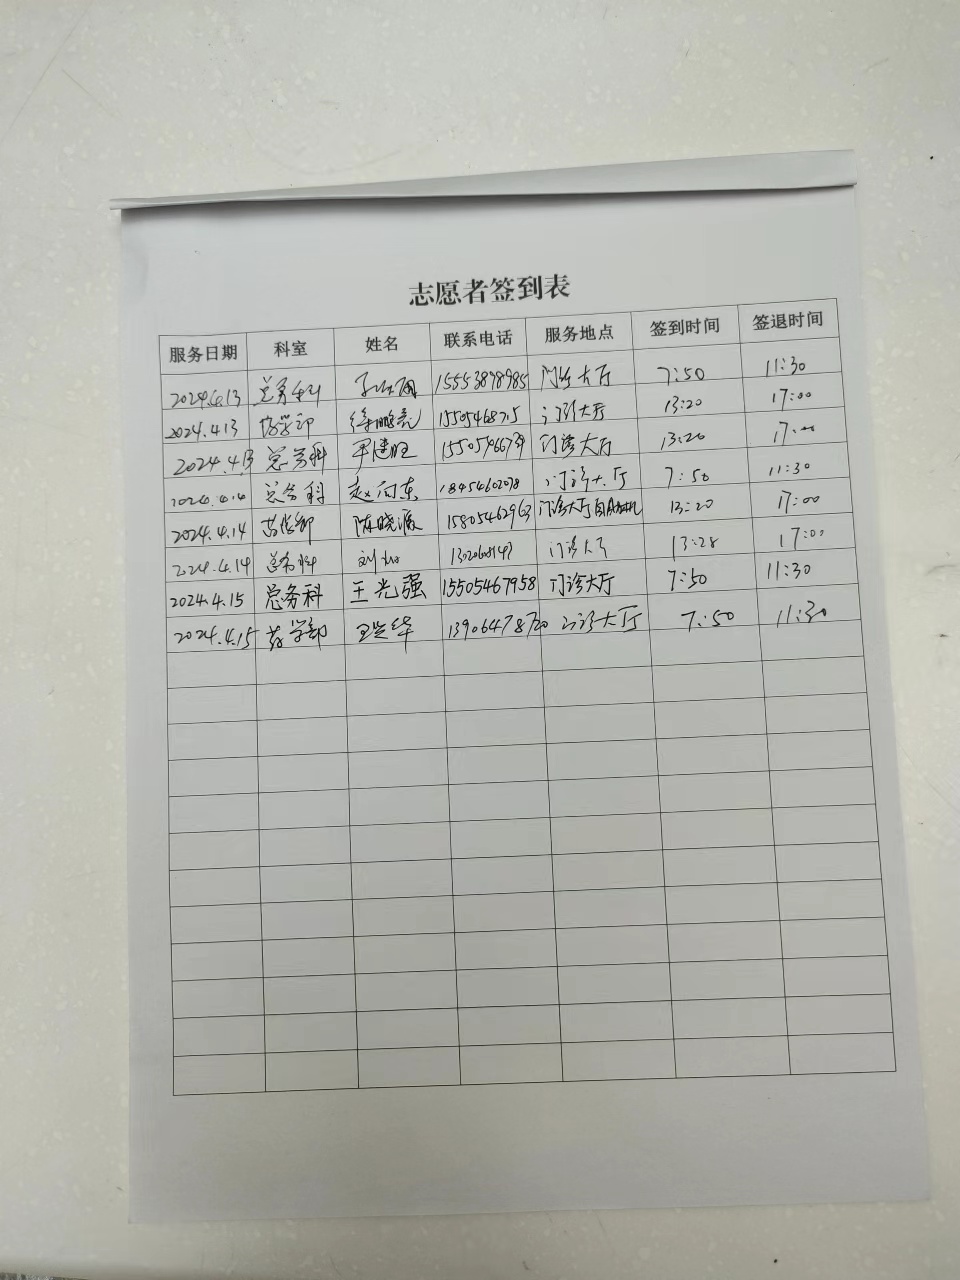 志愿者签到表
服务日期 科室 姓名 联系电话 服务地点 签到时间 签退时间
2024.4.13 总务科 15553898985 门诊大厅 7:50 11:30
2024.4.13 药学部 徐鹏亮 门诊大厅 13:20 17:00
2024.4.13 总务科 尹建旺 门诊大厅 13:20 17:00
2024.4.14 总务科 赵向东 18454602078 门诊大厅 7:50 11:30
2024.4.14 药学部 陈晓 15805462963 门诊大厅自助机 13:20 17:00
2024.4.14 总务科 门诊大厅 13:28 17:00
2024.4.15 总务科 王光强 15505467958 门诊大厅 7:50 11:30
2024.4.15 药学部 13906478720 门诊大厅 7:50 11:30